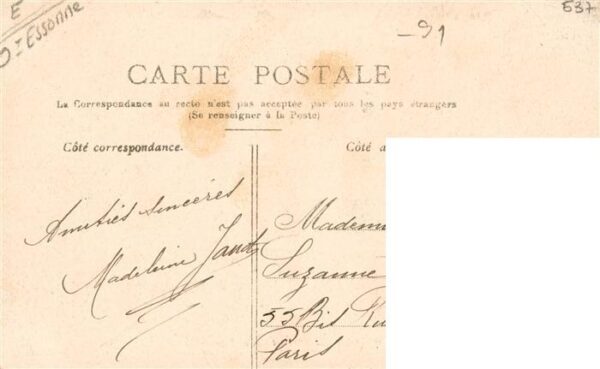 E
S-Essonne
-91
537
CARTE POSTALE
La Correspondance au recto n'est pas acceptée par tous les pays étrangers
(Se renseigner à la Poste)
Côté correspondance.
Côté a
Amitiés sincères
Madeleine
Madem
Suzanne
55 Bis Ru
Paris